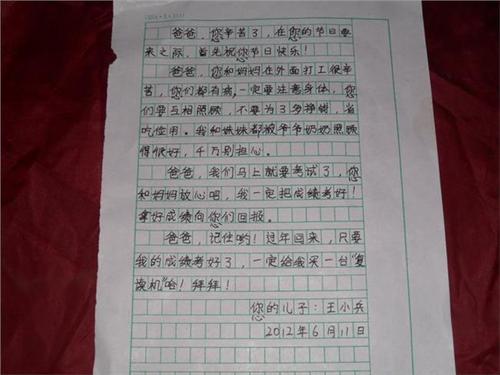 爸爸，您辛苦了，在您的节日要
来之际，首先祝您节日快乐！
爸爸，您和妈妈在外面打工很辛
苦，您们都有病，一定要注意身体，您
们要互相照顾，不要为了多挣钱，省
吃俭用。我和妹妹都被爷爷奶奶照顾
得很好，千万别担心。
爸爸，我们马上就要考试了，您
和妈妈放心吧，我一定把成绩考好！
拿好成绩向您们回报。
爸爸，记住哟！过年回来，只要
我的成绩考好了，一定给我买一台"复
读机"哈！拜拜！
您的儿子：王小兵
2012年6月11日